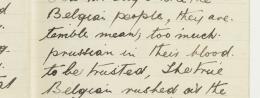 Belgian people, they are
mean, too much
prussian in their blood.
to be trusted, The true
Belgian rushed at the